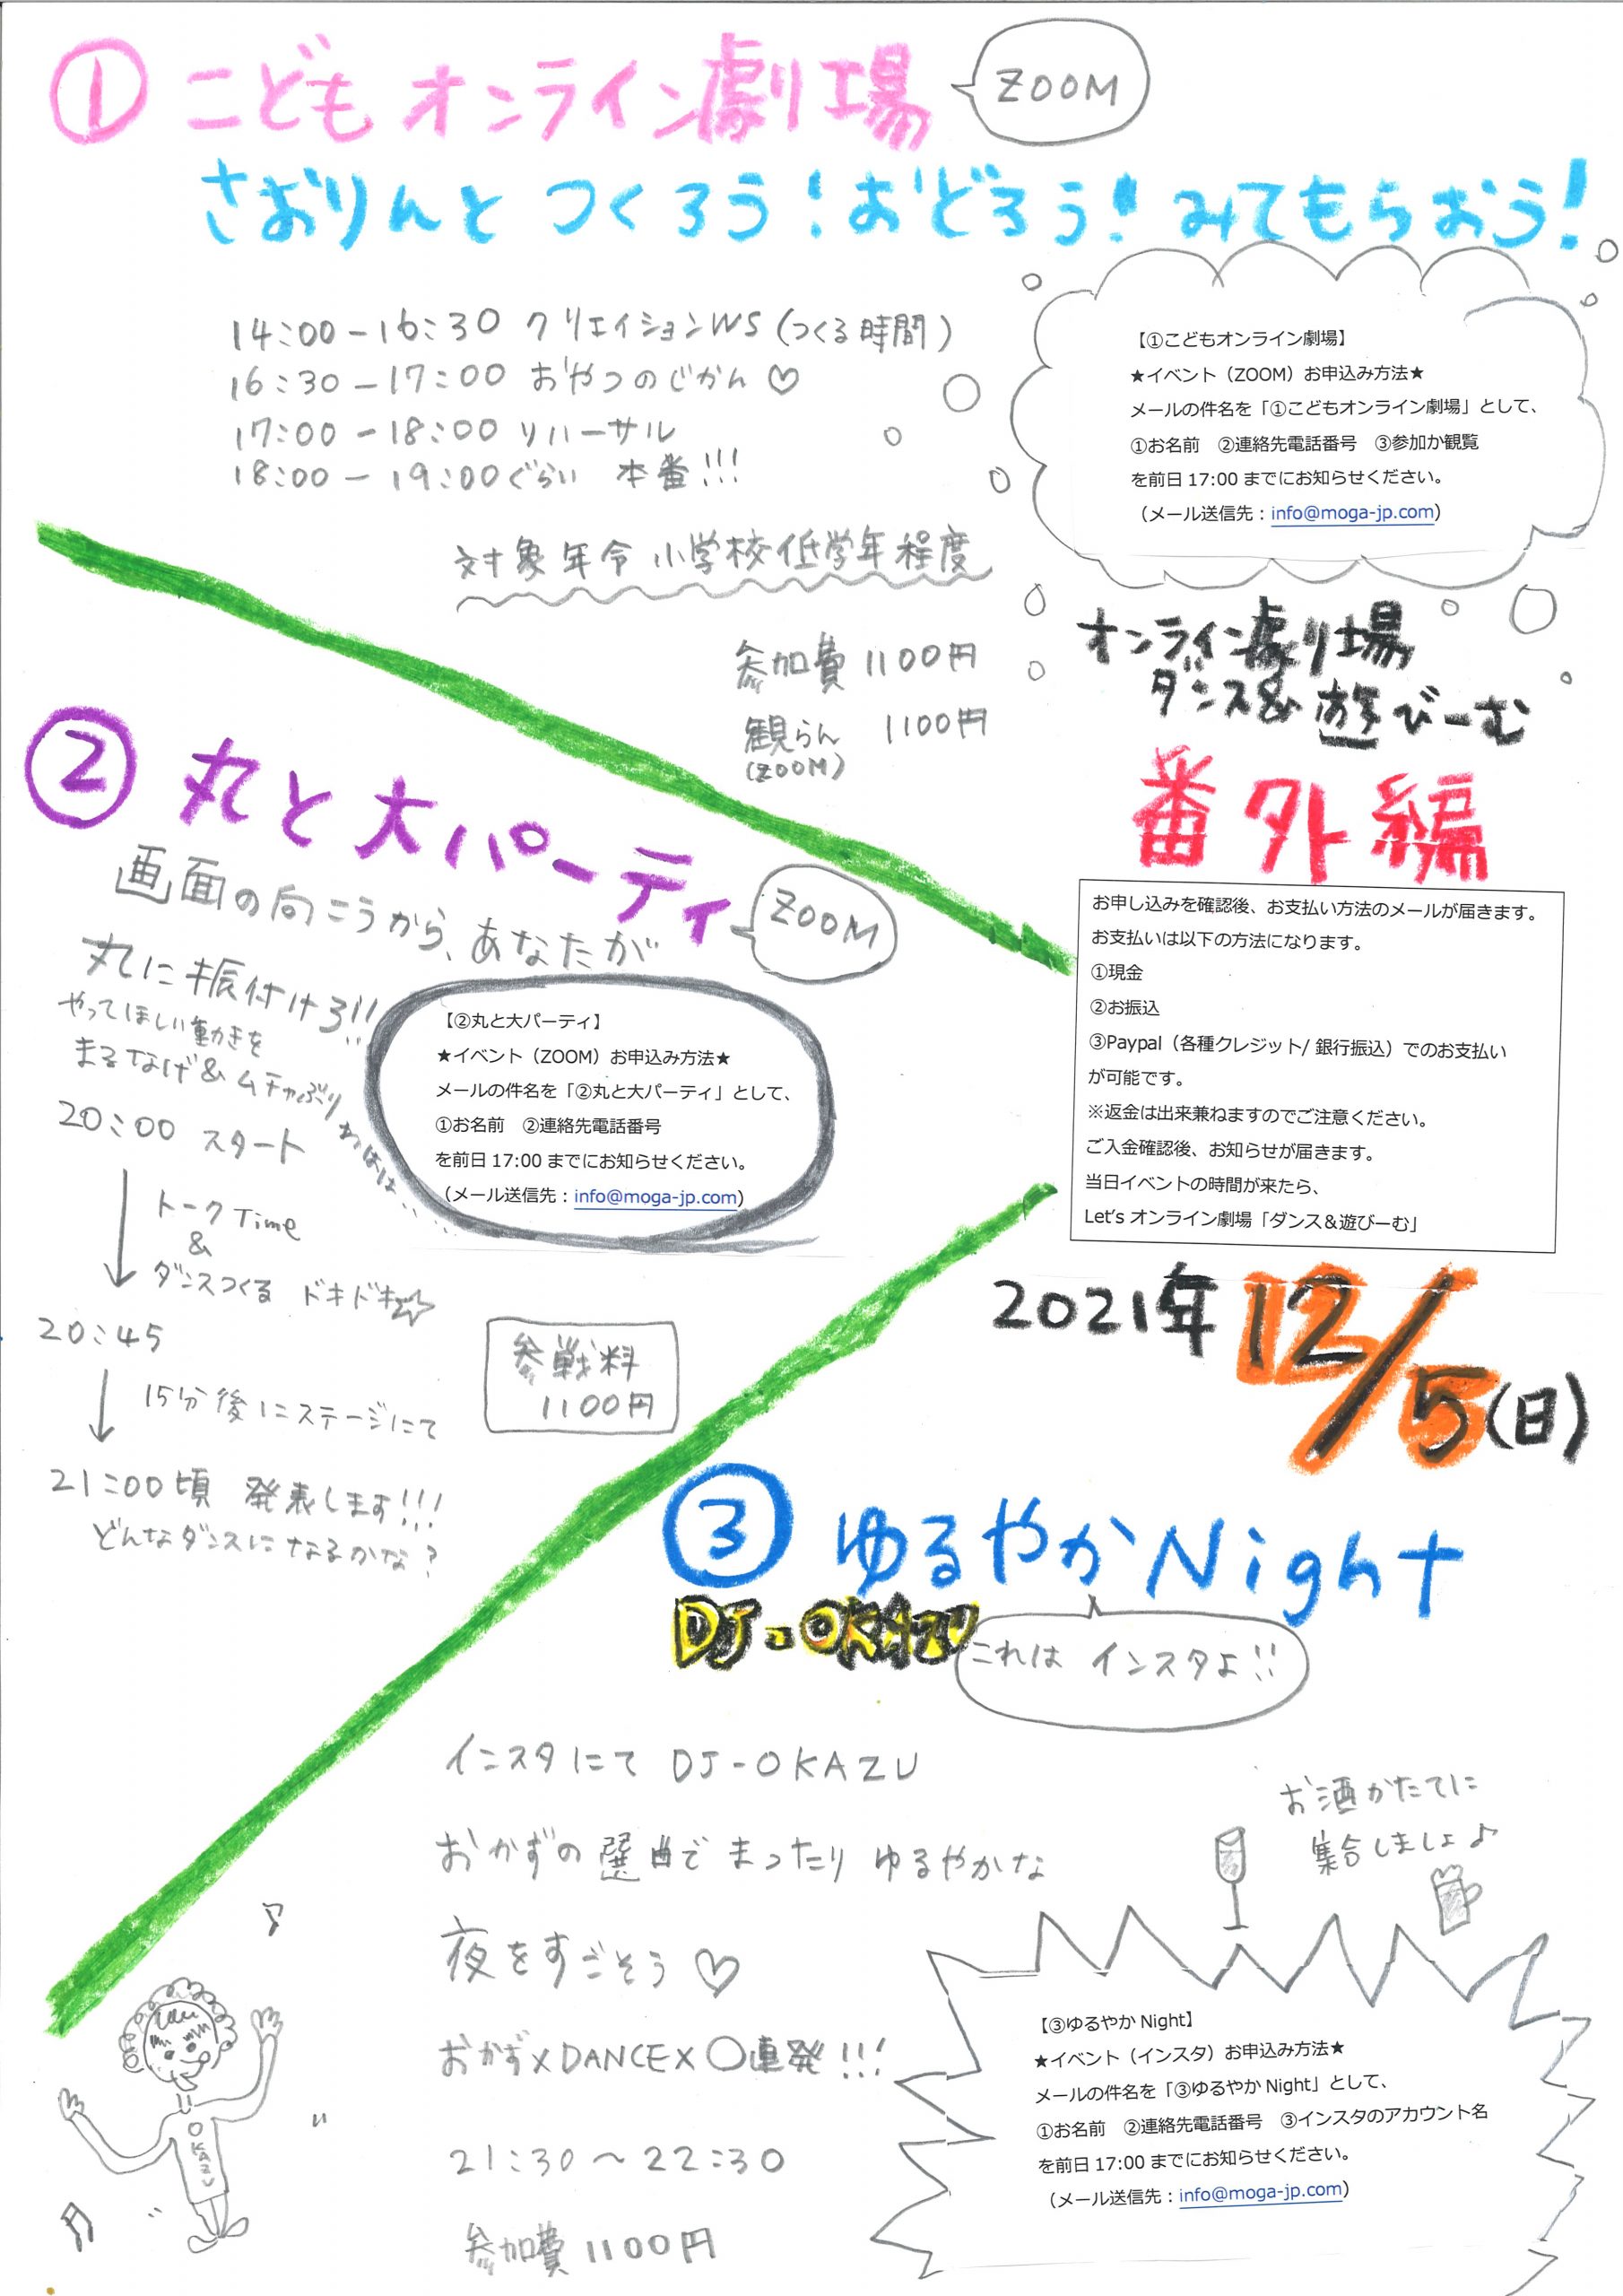 ① こども オンライン劇場
ZOOM
さおりんと つくろう！おどろう！みてもらおう！
14:00－16:30 クリエイションWS（つくる時間）
16:30－17:00 おやつのじかん♡
17:00－18:00 リハーサル
18:00－19:00ぐらい 本番!!!
対象年令 小学校低学年程度
参加費 1100円
観らん 1100円
(ZOOM)
【①こどもオンライン劇場】
★イベント（ZOOM）お申込み方法★
メールの件名を「①こどもオンライン劇場」として、
①お名前　②連絡先電話番号　③参加か観覧
を前日 17:00 までにお知らせください。
（メール送信先：info@moga-jp.com）
オンライン劇場
ダンス＆遊びーむ
番外編
お申し込みを確認後、お支払い方法のメールが届きます。
お支払いは以下の方法になります。
①現金
②お振込
③Paypal（各種クレジット/ 銀行振込）でのお支払い
が可能です。
※返金は出来兼ねますのでご注意ください。
ご入金確認後、お知らせが届きます。
当日イベントの時間が来たら、
Let's オンライン劇場「ダンス＆遊びーむ」
2021年 12/5(日)
② 丸と大パーティ
ZOOM
画面の向こうから、あなたが
丸に振付ける!!
やってほしい動きを
まるなげ＆ムチャぶり
わはは……
20:00 スタート
トークTime
&
ダンスつくる ドキドキ☆
20:45
15分後にステージにて
21:00頃 発表します!!!
どんなダンスになるかな？
【②丸と大パーティ】
★イベント（ZOOM）お申込み方法★
メールの件名を「②丸と大パーティ」として、
①お名前　②連絡先電話番号
を前日 17:00 までにお知らせください。
（メール送信先：info@moga-jp.com）
参戦料
1100円
③ ゆるやかNight
DJ-OKAZU
これは インスタよ!!
インスタにて DJ-OKAZU
おかずの選曲で まったり ゆるやかな
夜をすごそう♡
おかず×DANCE×〇連発!!!
21:30～22:30
参加費 1100円
お酒かたてに
集合しましょ♪
【③ゆるやか Night】
★イベント（インスタ）お申込み方法★
メールの件名を「③ゆるやか Night」として、
①お名前　②連絡先電話番号　③インスタのアカウント名
を前日 17:00 までにお知らせください。
（メール送信先：info@moga-jp.com）
OKAZU